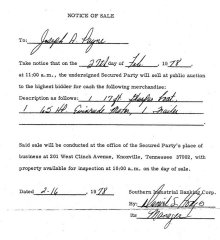 NOTICE OF SALE
To: Joseph D. Payne
Take notice that on the 27th day of Feb, 1978
at 11:00 a.m., the undersigned Secured Party will sell at public auction
to the highest bidder for cash the following merchandise:
Description as follows: 1 17ft boat,
1 65 HP Evinrude Motor, 1 Trailer
Said sale will be conducted at the office of the Secured Party's place of
business at 201 West Clinch Avenue, Knoxville, Tennessee 37902, with
property available for inspection at 10:00 a.m. on the day of sale.
Dated 2-16, 1978 Southern Industrial Banking Corp.
By:
Its Manager